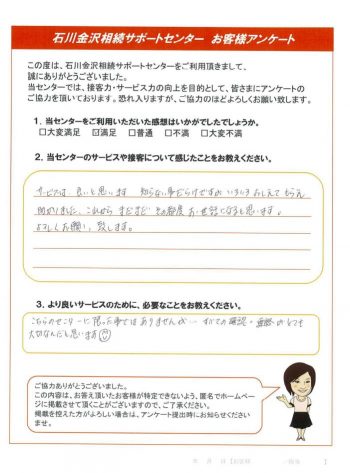 石川金沢相続サポートセンター お客様アンケート
この度は、石川金沢相続サポートセンターをご利用頂きまして、
誠にありがとうございました。
当センターでは、接客力・サービス力の向上を目的として、皆さまにアンケートの
ご協力を頂いております。恐れ入りますが、ご協力のほどよろしくお願い致します。
1．当センターをご利用いただいた感想はいかがでしたでしょうか。
□大変満足 ☑満足 □普通 □不満 □大変不満
2．当センターのサービスや接客について感じたことをお教えください。
サービスは 良いと思います 知らない事だらけですが いろいろ おしえて もらえ
助かりました、これからまだまだ その都度 お世話になると思います。
よろしくお願い致します。
3．より良いサービスのために、必要なことをお教えください。
こちらのセンターに限った事ではありませんが、すべての確認・ がとても
大切なんだと思います
ご協力ありがとうございました。
この内容は、お答え頂いたお客様が特定できないよう、匿名でホームペー
ジに掲載させて頂くことがございますので、ご了承ください。
掲載を控えた方がよろしい場合は、アンケート提出時にお知らせくださ
いませ。
年 月 日